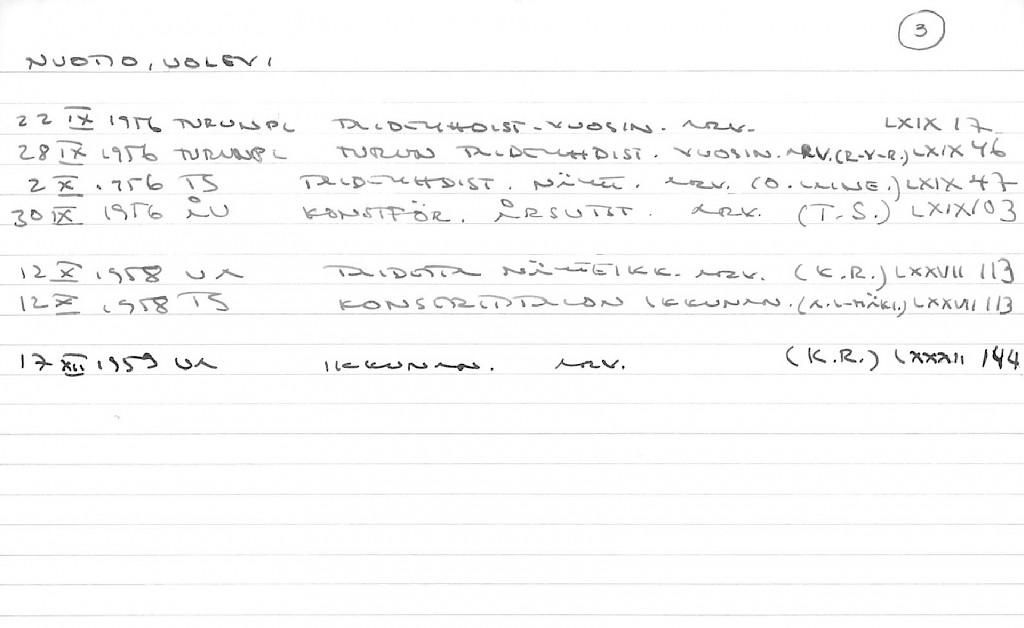 3
NUOTIO, UOLEVI
22 IX 1956 TURUNPL TAIDEYHDIST-VUOSIN. ARV. LXIX 17
28 IX 1956 TURUNPL TURUN TAIDEYHDIST. VUOSIN. ARV. (R-V-R.) LXIX 46
2 X 1956 TS TAIDEYHDIST. NÄYTT. ARV. (O. LAINE.) LXIX 47
30 IX 1956 ÅU KONSTFÖR. ÅRSUTST. ARV. (T-S.) LXIX 103
12 X 1958 UA TAIDETTA NÄYTEIKK. ARV. (K.R.) LXXVII 113
12 X 1958 TS KONSERTTITALON IKKUNAN. LXXVII 113
17 XII 1959 UA IKKUNAN. ARV. (K.R.) LXXXII 144